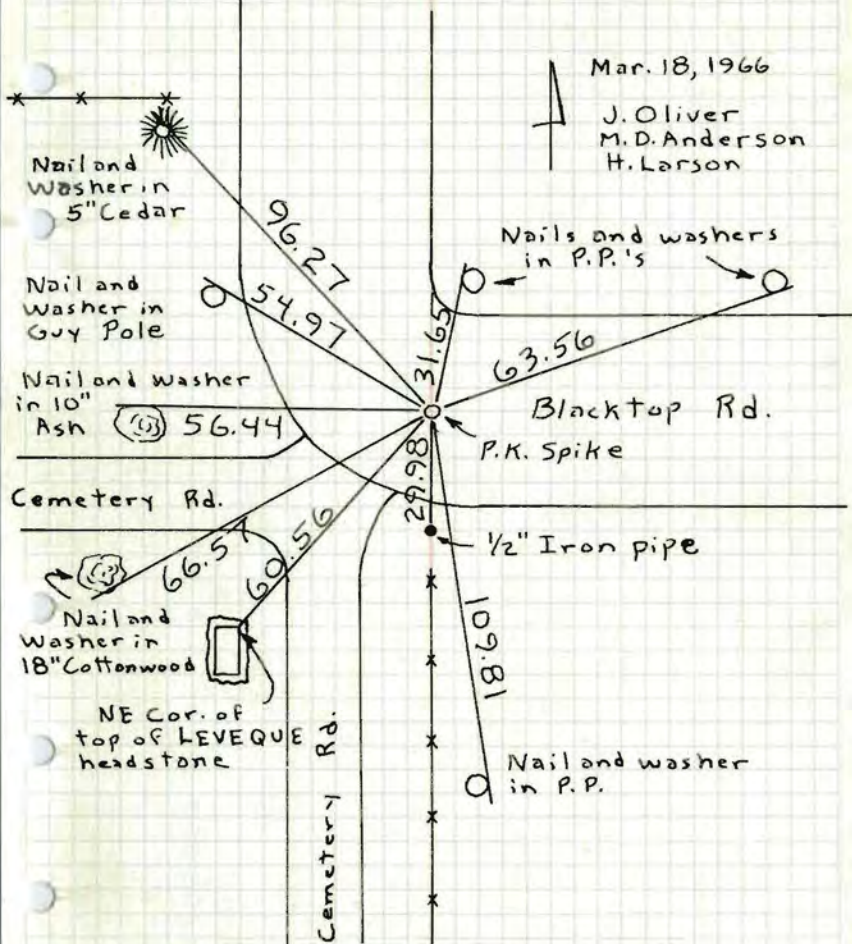 Mar. 18, 1966
J. Oliver
M. D. Anderson
H. Larson
Nail and
Washer in
5" Cedar
96.27
Nails and washers
in P.P.'s
Nail and
Washer in
Guy Pole
54.97
31.65
63.56
Nail and washer
in 10"
Ash
56.44
Blacktop Rd.
P.K. Spike
Cemetery Rd.
29.98
1/2" Iron pipe
66.57
60.56
Nail and
Washer in
18" Cottonwood
106.81
NE Cor. of
top of LEVEQUE
headstone
Cemetery Rd.
Nail and washer
in P.P.